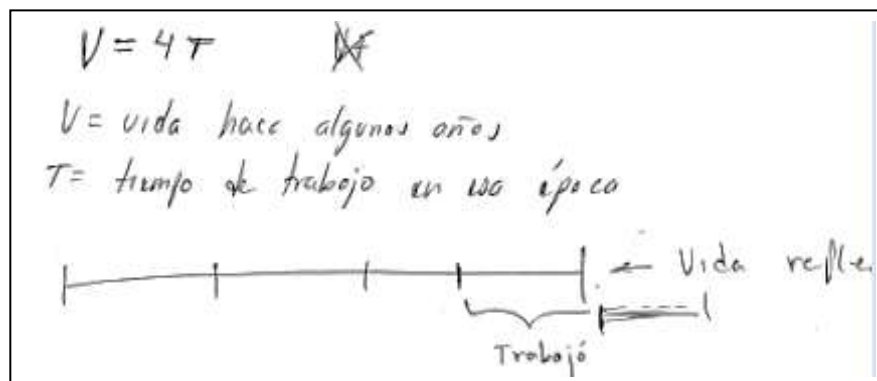 V = 4T
V = vida hace algunos años
T = tiempo de trabajo en esa época
← Vida
Trabajó